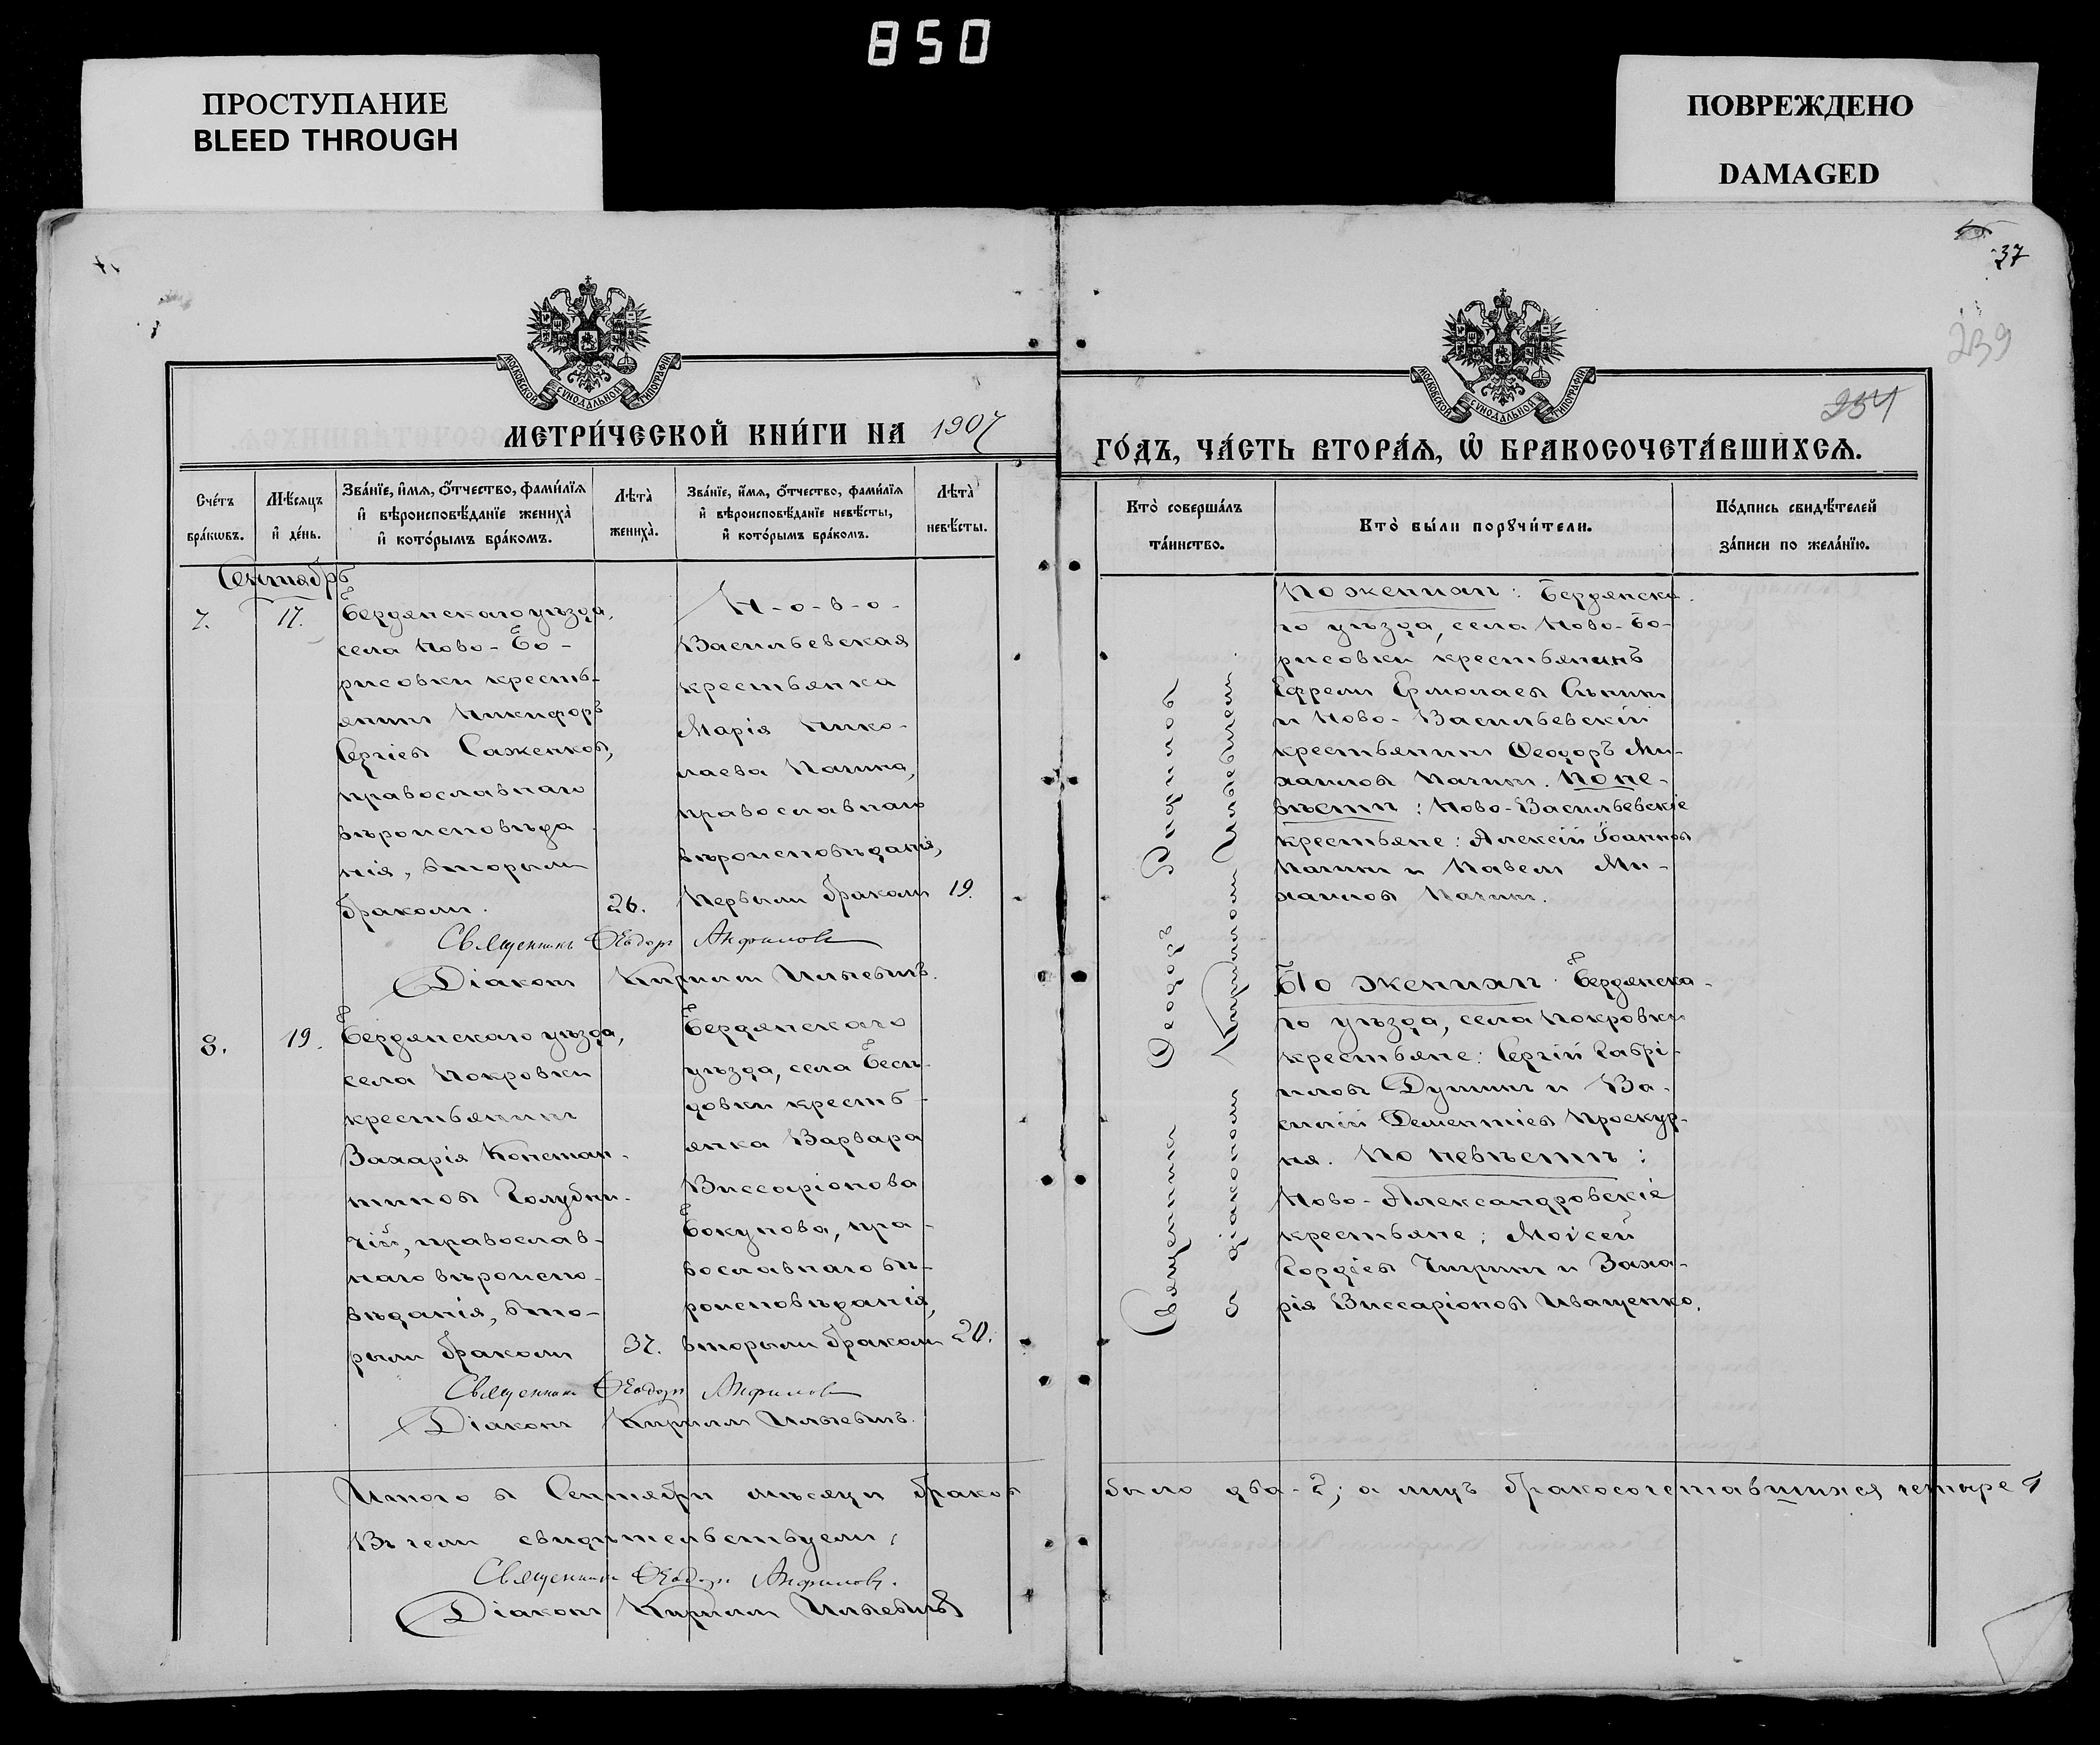 850
ПРОСТУПАНИЕ
BLEED THROUGH
ПОВРЕЖДЕНО
DAMAGED
37
239
234
МОСКОВСКОЙ СѴНОДАЛЬНОЙ ТИПОГРАФІИ
МОСКОВСКОЙ СѴНОДАЛЬНОЙ ТИПОГРАФІИ
МЕТРИ́ЧЕСКОЙ КНИ́ГИ НА 1907
ГО́ДЪ, ЧА́СТЬ ВТОРА́Ѧ, Ѡ҆ БРАКОСОЧЕТА́ВШИХСѦ.
Сче́тъ
бра́кѡвъ.
Мѣ́сѧцъ
и҆ де́нь.
Зва́нїе, и҆́мѧ, ѻ҆́тчество, фами́лїѧ
и҆ вѣроисповѣ́данїе жениха̀
и҆ кото́рымъ бра́комъ.
Лѣта̀
жениха̀.
Зва́нїе, и҆́мѧ, ѻ҆́тчество, фами́лїѧ
и҆ вѣроисповѣ́данїе невѣ́сты,
и҆ кото́рымъ бра́комъ.
Лѣта̀
невѣ́сты.
Кто̀ соверша́лъ
та́инство.
Кто̀ бы́ли порꙋчи́тели.
По́дпись свидѣ́телей
за́писи по жела́нїю.
Сентябрь
7.
17.
Бердянскаго уѣзда,
села Ново-Бо-
рисовки кресть-
янинъ Никифоръ
Сергіевъ Саженковъ,
православнаго
вѣроисповѣда
нія, вторымъ
бракомъ.
26.
Н-о-в-о-
Васильевская
крестьянка
Марія Нико-
лаева Пачина,
православнаго
вѣроисповѣданія,
первымъ бракомъ
19.
Священникъ Ѳеодоръ Анфиловъ
Діаконъ Кириллъ Ильевичъ.
Священникъ Ѳеодоръ
съ діакономъ Кирилломъ Ильевичемъ
По женихѣ: Бердянска
го уѣзда, села Ново-Бо-
рисовки крестьянинъ
Ефремъ Ермолаевъ
и Ново-Васильевскій
крестьянинъ Ѳеодоръ Ми-
хаиловъ Пачинъ. По не-
вѣстѣ: Ново-Васильевскіе
крестьяне: Алексій Іоанновъ
Пачинъ и Павелъ Ми-
хаиловъ Пачинъ.
8.
19.
Бердянскаго уѣзда,
села Покровки
крестьянинъ
Захарія Констан-
тиновъ Голубни-
чій, православ-
наго вѣроиспо-
вѣданія, вто-
рымъ бракомъ
37.
Бердянскаго
уѣзда, села Бесѣ-
довки кресть-
янка Варвара
Виссаріонова
Бокунова, пра-
вославнаго вѣ-
роисповѣданія,
вторымъ бракомъ
20.
Священникъ Ѳеодоръ Анфиловъ
Діаконъ Кириллъ Ильевичъ.
По женихѣ: Бердянска-
го уѣзда, села Покровки
крестьяне: Сергій Гаврі-
иловъ Душинъ и Ва-
силій Дементіевъ Проскур-
ня. По невѣстѣ:
Ново-Александровскіе
крестьяне: Моисей
Гордіевъ Чигринъ и Заха-
рія Виссаріоновъ Иващенко.
Итого въ Сентябрѣ мѣсяцѣ браковъ было два-2; а лицъ бракосочетавшихся четыре 4
Въ чемъ свидѣтельствуемъ,
Священникъ Ѳеодоръ Анфиловъ.
Діаконъ Кириллъ Ильевичъ